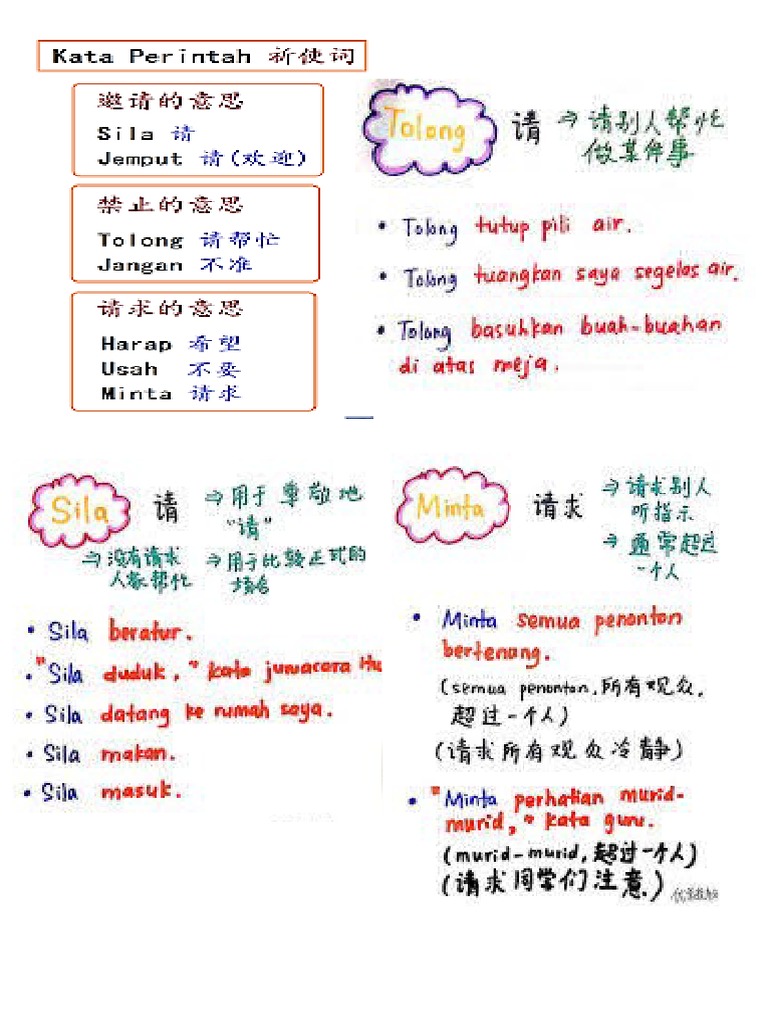 Kata Perintah 祈使词
邀请的意思
Sila 请
Jemput 请(欢迎)
禁止的意思
Tolong 请帮忙
Jangan 不准
请求的意思
Harap 希望
Usah 不要
Minta 请求
Tolong 请 ⇒ 请别人帮忙
做某件事
• Tolong tutup pili air.
• Tolong tuangkan saya segelas air.
• Tolong basuhkan buah-buahan
di atas meja.
Sila 请 ⇒ 用于尊敬地
"请"
⇒ 没有请求
人家帮忙
⇒ 用于比较正式的
场合
• Sila beratur.
• "Sila duduk," kata juruacara itu
• Sila datang ke rumah saya.
• Sila makan.
• Sila masuk.
Minta 请求 ⇒ 请求别人
听指示
⇒ 通常超过
一个人
• Minta semua penonton
bertenang.
(semua penonton, 所有观众,
超过一个人)
(请求所有观众冷静)
• "Minta perhatian murid-
murid," kata guru.
(murid-murid, 超过一个人)
(请求同学们注意.)